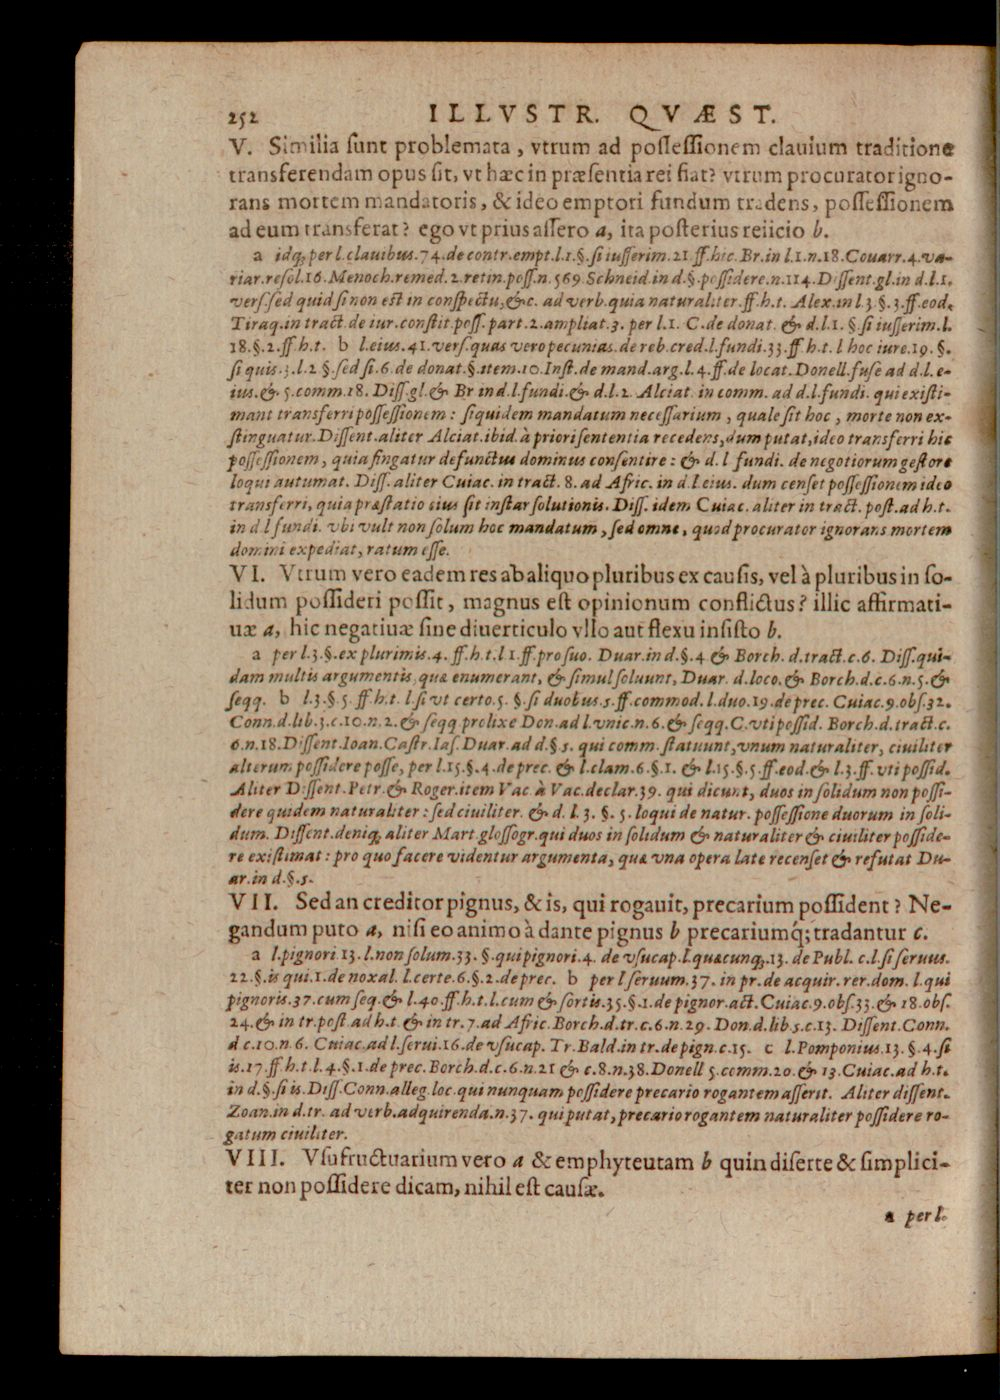 252 ILLVSTR. QVÆST.
V. Similia sunt problemata, vtrum ad possessionem clauium traditione
transferendam opus sit, vt hæc in præsentia rei fiat? vtrum procurator igno-
rans mortem mandatoris, & ideo emptori fundum tradens, possessionem
ad eum transferat? ego vt prius assero a, ita posterius reiicio b.
a idq; per l. clauibus. 74. de contr. empt. l.1. §. si iusserim. 21. ff. hic. Br. in l.1. n. 18. Couarr. 4. va-
riar. resol. 16. Menoch. remed. 2. retin. poss. n. 569. Schneid. in d. §. possidere. n. 114. Dissent. gl. in d. l.1.
vers. sed quid si non est in conspectu, &c. ad verb. quia naturaliter. ff. h.t. Alex. in l.3. §. 3. ff. eod.
Tiraq. in tract. de iur. constit. poss. part. 2. ampliat. 3. per l.1. C. de donat. & d. l.1. §. si iusserim. l.
18. §. 2. ff. h.t. b l. eius. 41. vers. quas vero pecunias. de reb. cred. l. fundi. 33. ff. h.t. l hoc iure. 19. §.
si quis. 3. l.2 §. sed si. 6. de donat. §. item. 10. Inst. de mand. arg. l.4. ff. de locat. Donell. fuse ad d. l. e-
ius. & 5. comm. 18. Diss. gl. & Br in d. l. fundi. & d. l.2. Alciat. in comm. ad d. l. fundi. qui existi-
mant transferri possessionem: siquidem mandatum necessarium, quale sit hoc, morte non ex-
stinguatur. Dissent. aliter Alciat. ibid. à priori sententia recedens, dum putat, ideo transferri hic
possessionem, quia fingatur defunctus dominus consentire: & d. l fundi. de negotiorum gestore
loqui autumat. Diss. aliter Cuiac. in tract. 8. ad Afric. in d. l. eius. dum censet possessionem ideo
transferri, quia præstatio eius sit instar solutionis. Diss. idem Cuiac. aliter in tract. post. ad h.t.
in d. l fundi. vbi vult non solum hoc mandatum, sed omne, quod procurator ignorans mortem
domini expediat, ratum esse.
VI. Vtrum vero eadem res ab aliquo pluribus ex causis, vel à pluribus in so-
lidum possideri possit, magnus est opinionum conflictus? illic affirmati-
uæ a, hic negatiuæ sine diuerticulo vllo aut flexu insisto b.
a per l.3. §. ex plurimis. 4. ff. h.t. l 1. ff. pro suo. Duar. in d. §. 4 & Borch. d. tract. c. 6. Diss. qui-
dam multis argumentis quæ enumerant, & simul soluunt, Duar. d. loco. & Borch. d. c. 6. n. 5. &
seqq. b l.3. §. 5. ff. h.t. l. si vt certo. 5. §. si duobus. s. ff. commod. l. duo. 19. de prec. Cuiac. 9. obs. 32.
Conn. d. lib. 3. c. 10. n. 2. & seqq prolixe Don. ad l. vnic. n. 6. & seqq. C. vti possid. Borch. d. tract. c.
6. n. 18. Dissent. Ioan. Castr. Ias. Duar. ad d. §. 5. qui comm. statuunt, vnum naturaliter, ciuiliter
alterum possidere posse, per l. 15. §. 4. de prec. & l. clam. 6. §. 1. & l. 15. §. 5. ff. eod. & l.3. ff. vti possid.
Aliter Dissent. Petr. & Roger. item Vac à Vac. declar. 39. qui dicunt, duos in solidum non possi-
dere quidem naturaliter: sed ciuiliter. & d. l. 3. §. 5. loqui de natur. possessione duorum in soli-
dum. Dissent. deniq; aliter Mart. glossogr. qui duos in solidum & naturaliter & ciuiliter posside-
re existimat: pro quo facere videntur argumenta, quæ vna opera late recenset & refutat Du-
ar. in d. §. 5.
VII. Sed an creditor pignus, & is, qui rogauit, precarium possident? Ne-
gandum puto a, nisi eo animo à dante pignus b precariumq́; tradantur c.
a l. pignori 13. l. non solum. 33. §. qui pignori. 4. de vsucap. l. quæcunq;. 13. de Publ. c. l. si seruus.
22. §. is qui. 1. de noxal. l. certe. 6. §. 2. de prec. b per l seruum. 37. in pr. de acquir. rer. dom. l. qui
pignoris. 37. cum seq. & l. 40. ff. h.t. l. cum & sortis. 35. §. 1. de pignor. act. Cuiac. 9. obs. 33. & 18. obs.
24. & in tr. post. ad h.t. & in tr. 7. ad Afric. Borch. d. tr. c. 6. n. 29. Don. d. lib. 5. c. 13. Dissent. Conn.
d c. 10. n. 6. Cuiac. ad l. serui. 16. de vsucap. Tr. Bald. in tr. de pign. c. 15. c l. Pomponius. 13. §. 4. si
is. 17. ff. h.t. l. 4. §. 1. de prec. Borch. d. c. 6. n. 21 & c. 8. n. 38. Donell 5. comm. 20. & 13. Cuiac. ad h.t.
in d. §. si is. Diss. Conn. alleg. loc. qui nunquam possidere precario rogantem asserit. Aliter dissent.
Zoan. in d. tr. ad verb. adquirenda. n. 37. qui putat, precario rogantem naturaliter possidere ro-
gatum ciuiliter.
VIII. Vsufructuarium vero a & emphyteutam b quin diserte & simplici-
ter non possidere dicam, nihil est causæ.
a per l.